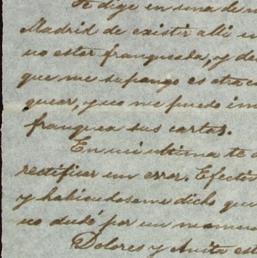 Te dije en una de m
Madrid de existir allí un
no estar franqueada, y de
que me supongo es otra c
quear, y no me puedo im
franquea sus cartas.
En mi última te d
rectificar un error. Efecti
y habiendoseme dicho que
no dudé por un momen
Dolores y Anita est